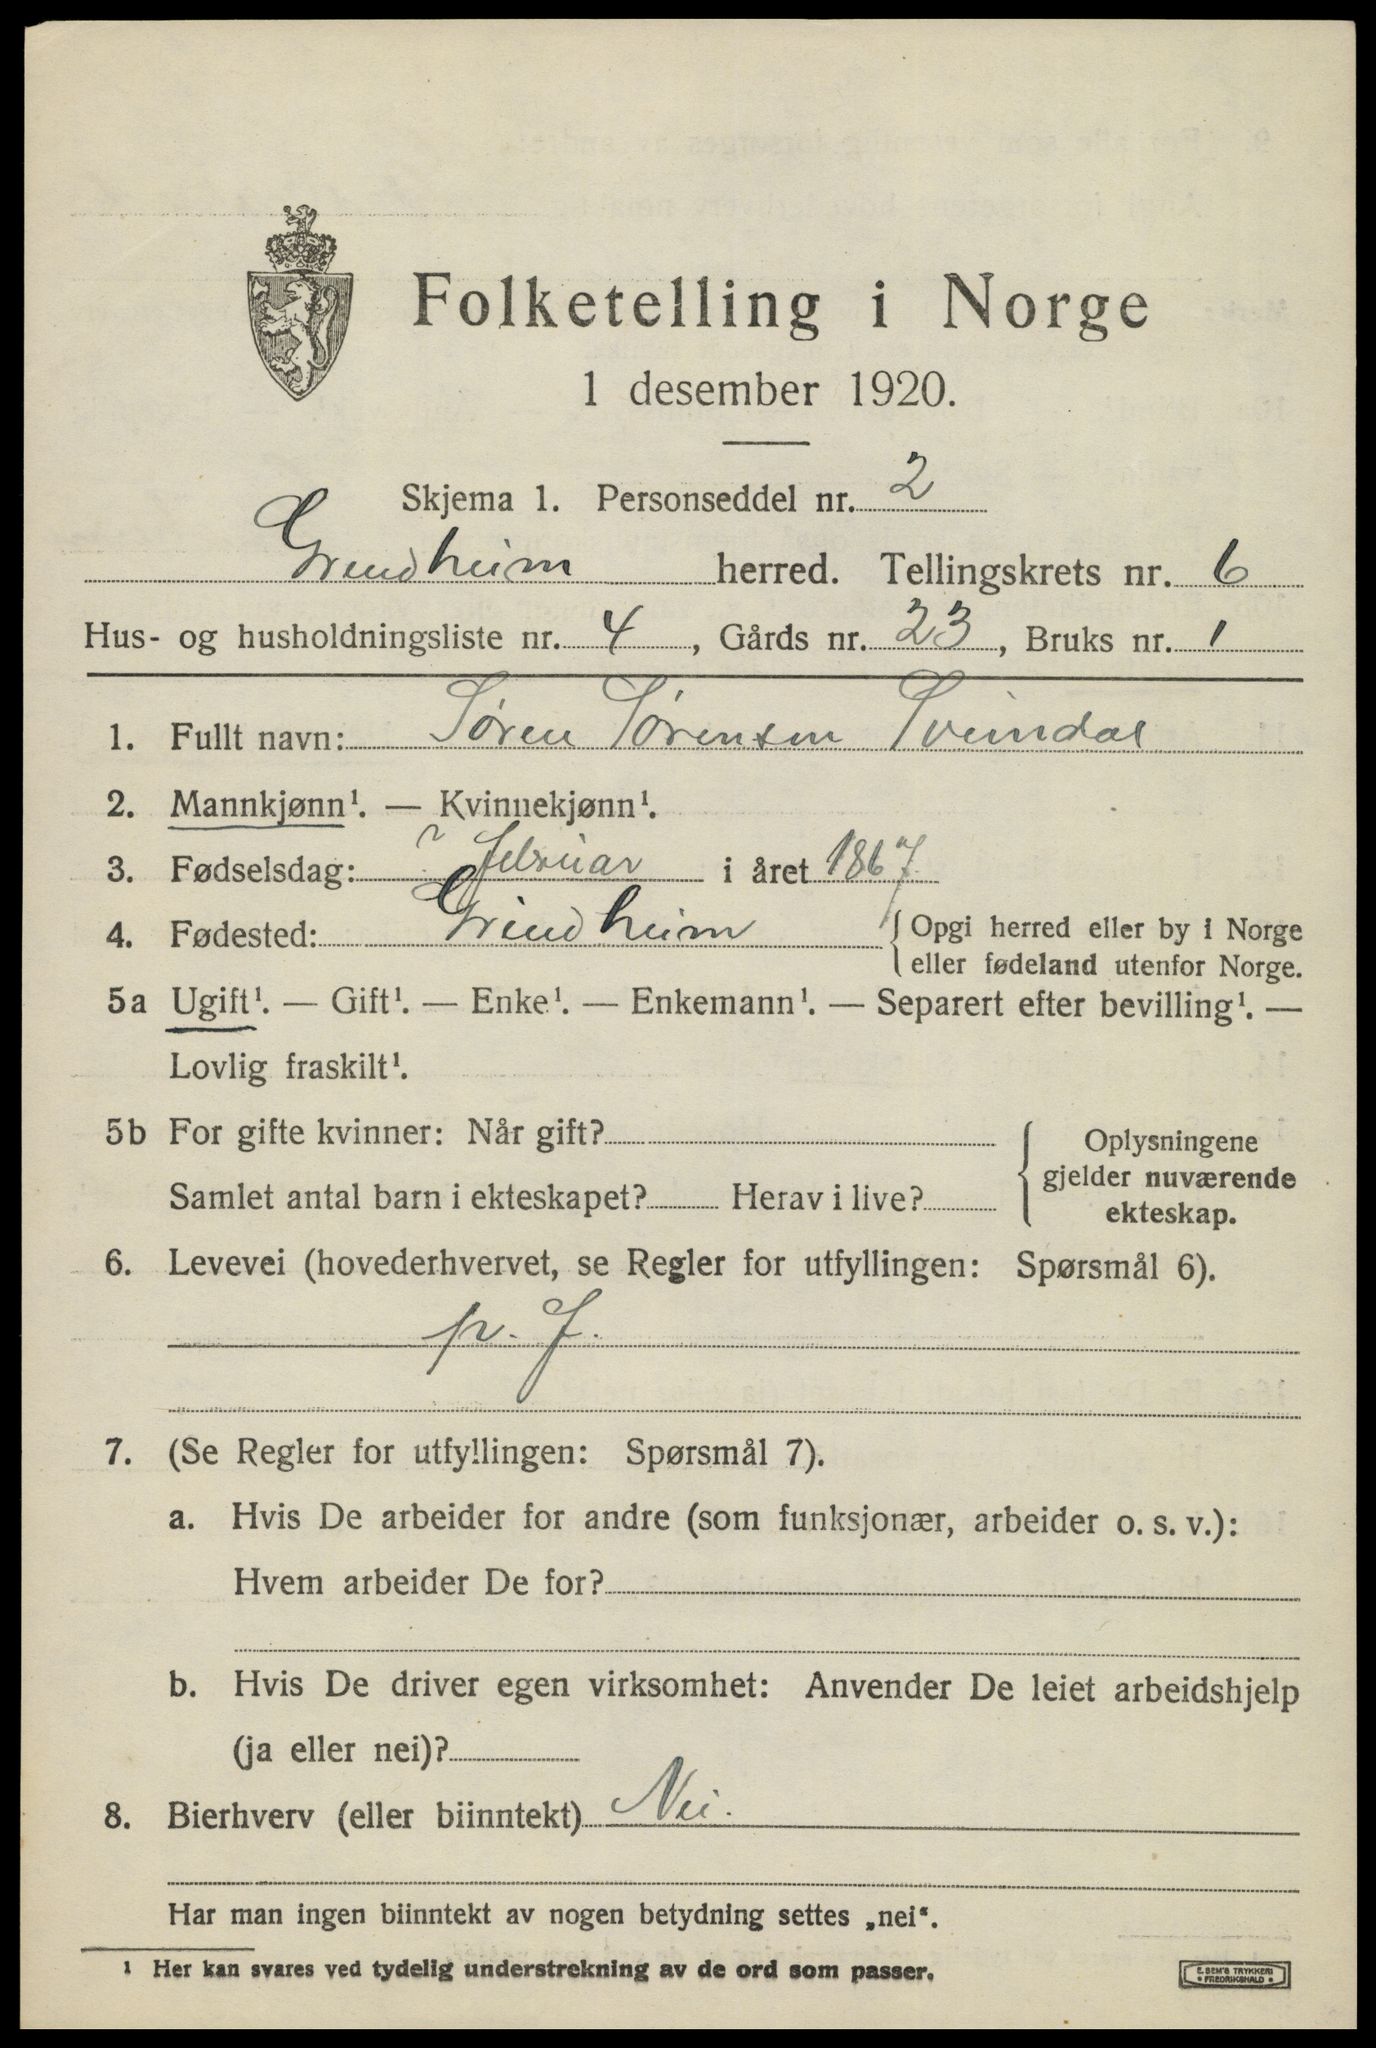 Folketelling i Norge
1 desember 1920.
Skjema 1. Personseddel nr. 2
Grindheim herred. Tellingskrets nr. 6
Hus- og husholdningsliste nr. 4, Gårds nr. 23, Bruks nr. 1
1. Fullt navn: Søren Sørensen Tveindal
2. Mannkjønn¹. — Kvinnekjønn¹.
3. Fødselsdag: ? februar i året 1867
4. Fødested: Grindheim { Opgi herred eller by i Norge
eller fødeland utenfor Norge.
5a Ugift¹. — Gift¹. — Enke¹. — Enkemann¹. — Separert efter bevilling¹. —
Lovlig fraskilt¹.
5b For gifte kvinner: Når gift?
Samlet antal barn i ekteskapet? Herav i live?
{ Oplysningene
gjelder nuværende
ekteskap.
6. Levevei (hovederhvervet, se Regler for utfyllingen: Spørsmål 6).
p. f.
7. (Se Regler for utfyllingen: Spørsmål 7).
a. Hvis De arbeider for andre (som funksjonær, arbeider o. s. v.):
Hvem arbeider De for?
b. Hvis De driver egen virksomhet: Anvender De leiet arbeidshjelp
(ja eller nei)?
8. Bierhverv (eller biinntekt) Nei.
Har man ingen biinntekt av nogen betydning settes „nei“.
1 Her kan svares ved tydelig understrekning av de ord som passer.
E. SEM'S TRYKKERI
FREDRIKSHALD